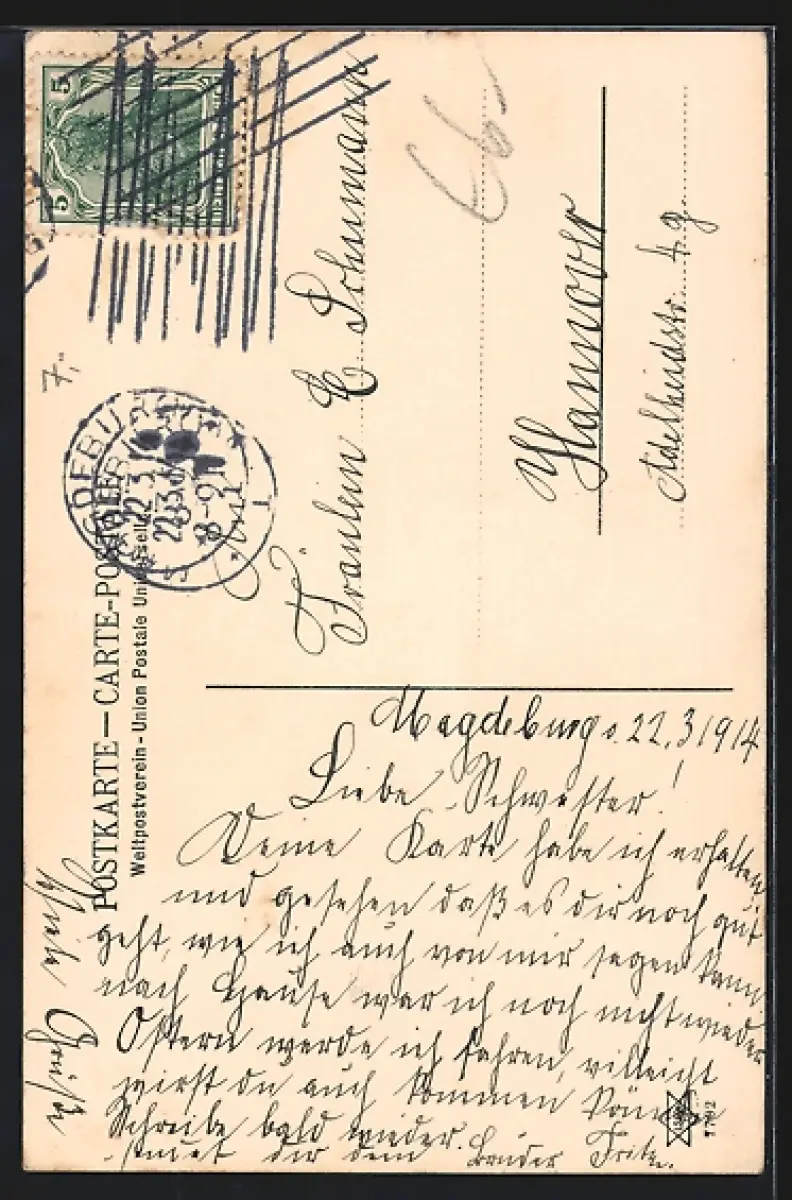 POSTKARTE — CARTE-POSTALE
Weltpostverein - Union Postale Universelle
5 5
22.3.
8-9
7.
66
Fräulein E Schumann
Hannover
Adelheidstr.
Magdeburg. 22.3.1914
Liebe Schwester!
Deine Karte habe ich erhalten,
und gesehen daß es dir noch gut
geht, wie ich auch von mir sagen kann
nach Hause war ich noch nicht wieder
Ostern werde ich fahren, villeicht
wirst du auch kommen
Schreibe bald wieder.
dir dein Bruder Fritz.
Viele Grüße